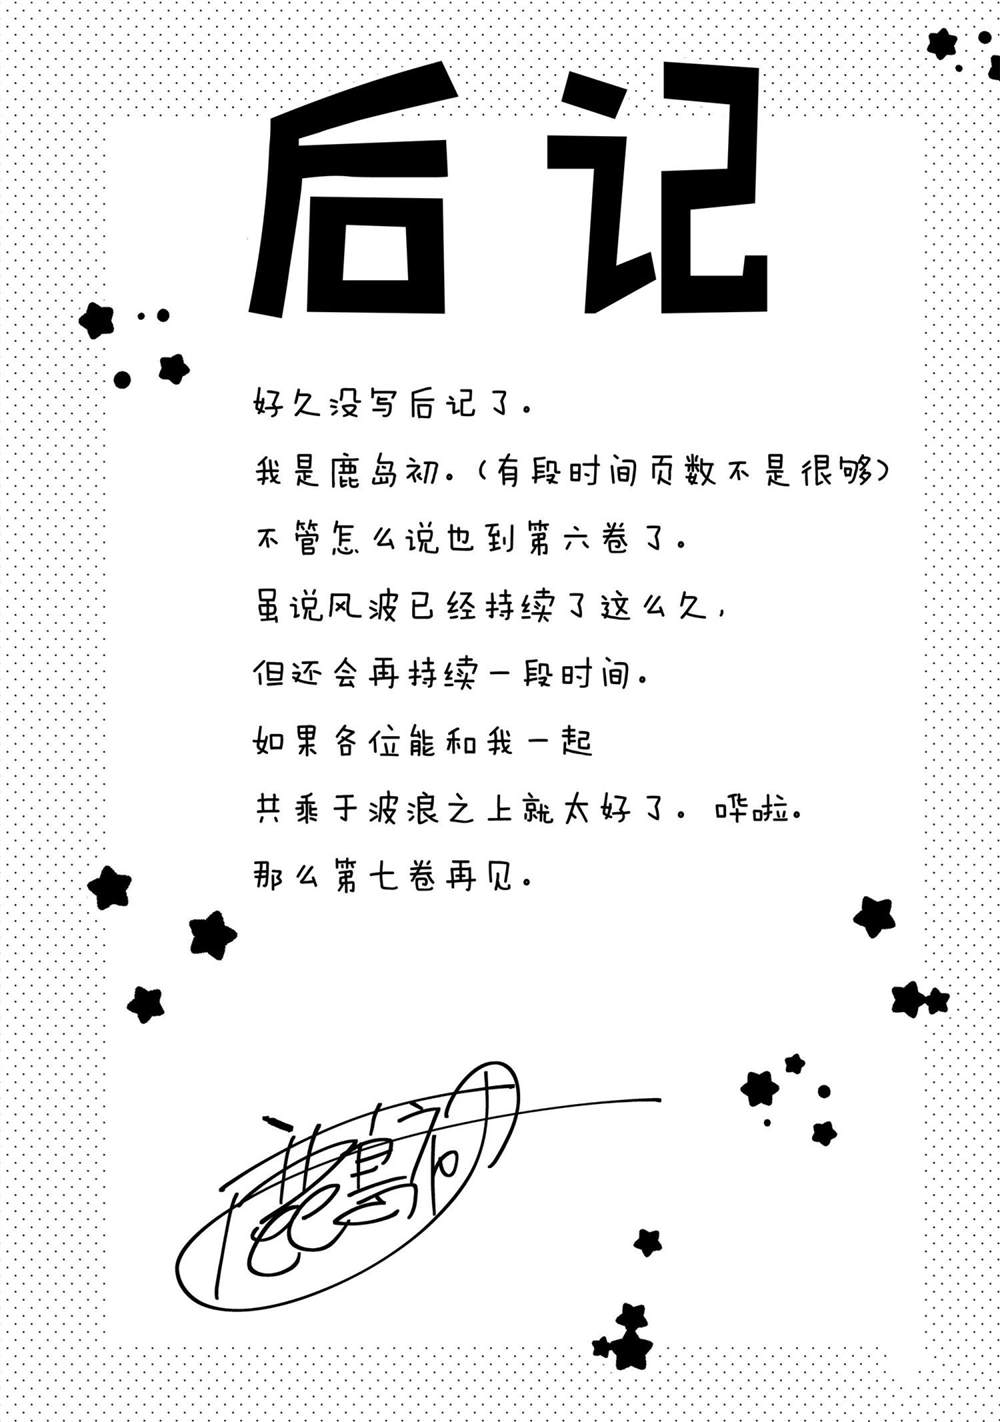 后记
好久没写后记了。
我是鹿岛初。（有段时间页数不是很够）
不管怎么说也到第六卷了。
虽说风波已经持续了这么久，
但还会再持续一段时间。
如果各位能和我一起
共乘于波浪之上就太好了。哗啦。
那么第七卷再见。